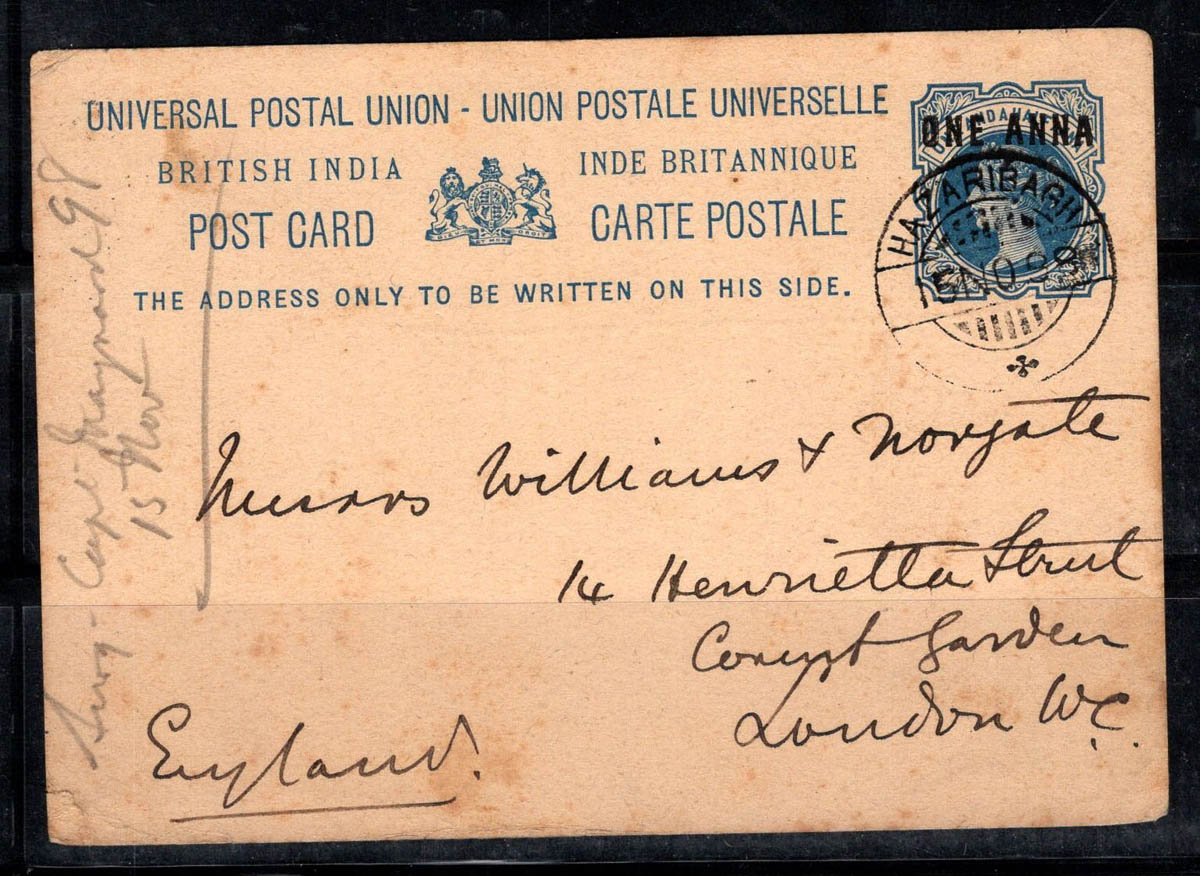 UNIVERSAL POSTAL UNION - UNION POSTALE UNIVERSELLE
BRITISH INDIA
INDE BRITANNIQUE
POST CARD
CARTE POSTALE
THE ADDRESS ONLY TO BE WRITTEN ON THIS SIDE.
ONE ANNA
HAZARIBAGH
15 NO 98
Messrs Williams & Norgate
14 Henrietta Street
Covent Garden
London W.C.
England.
Capt Maynard 98
15 Nov